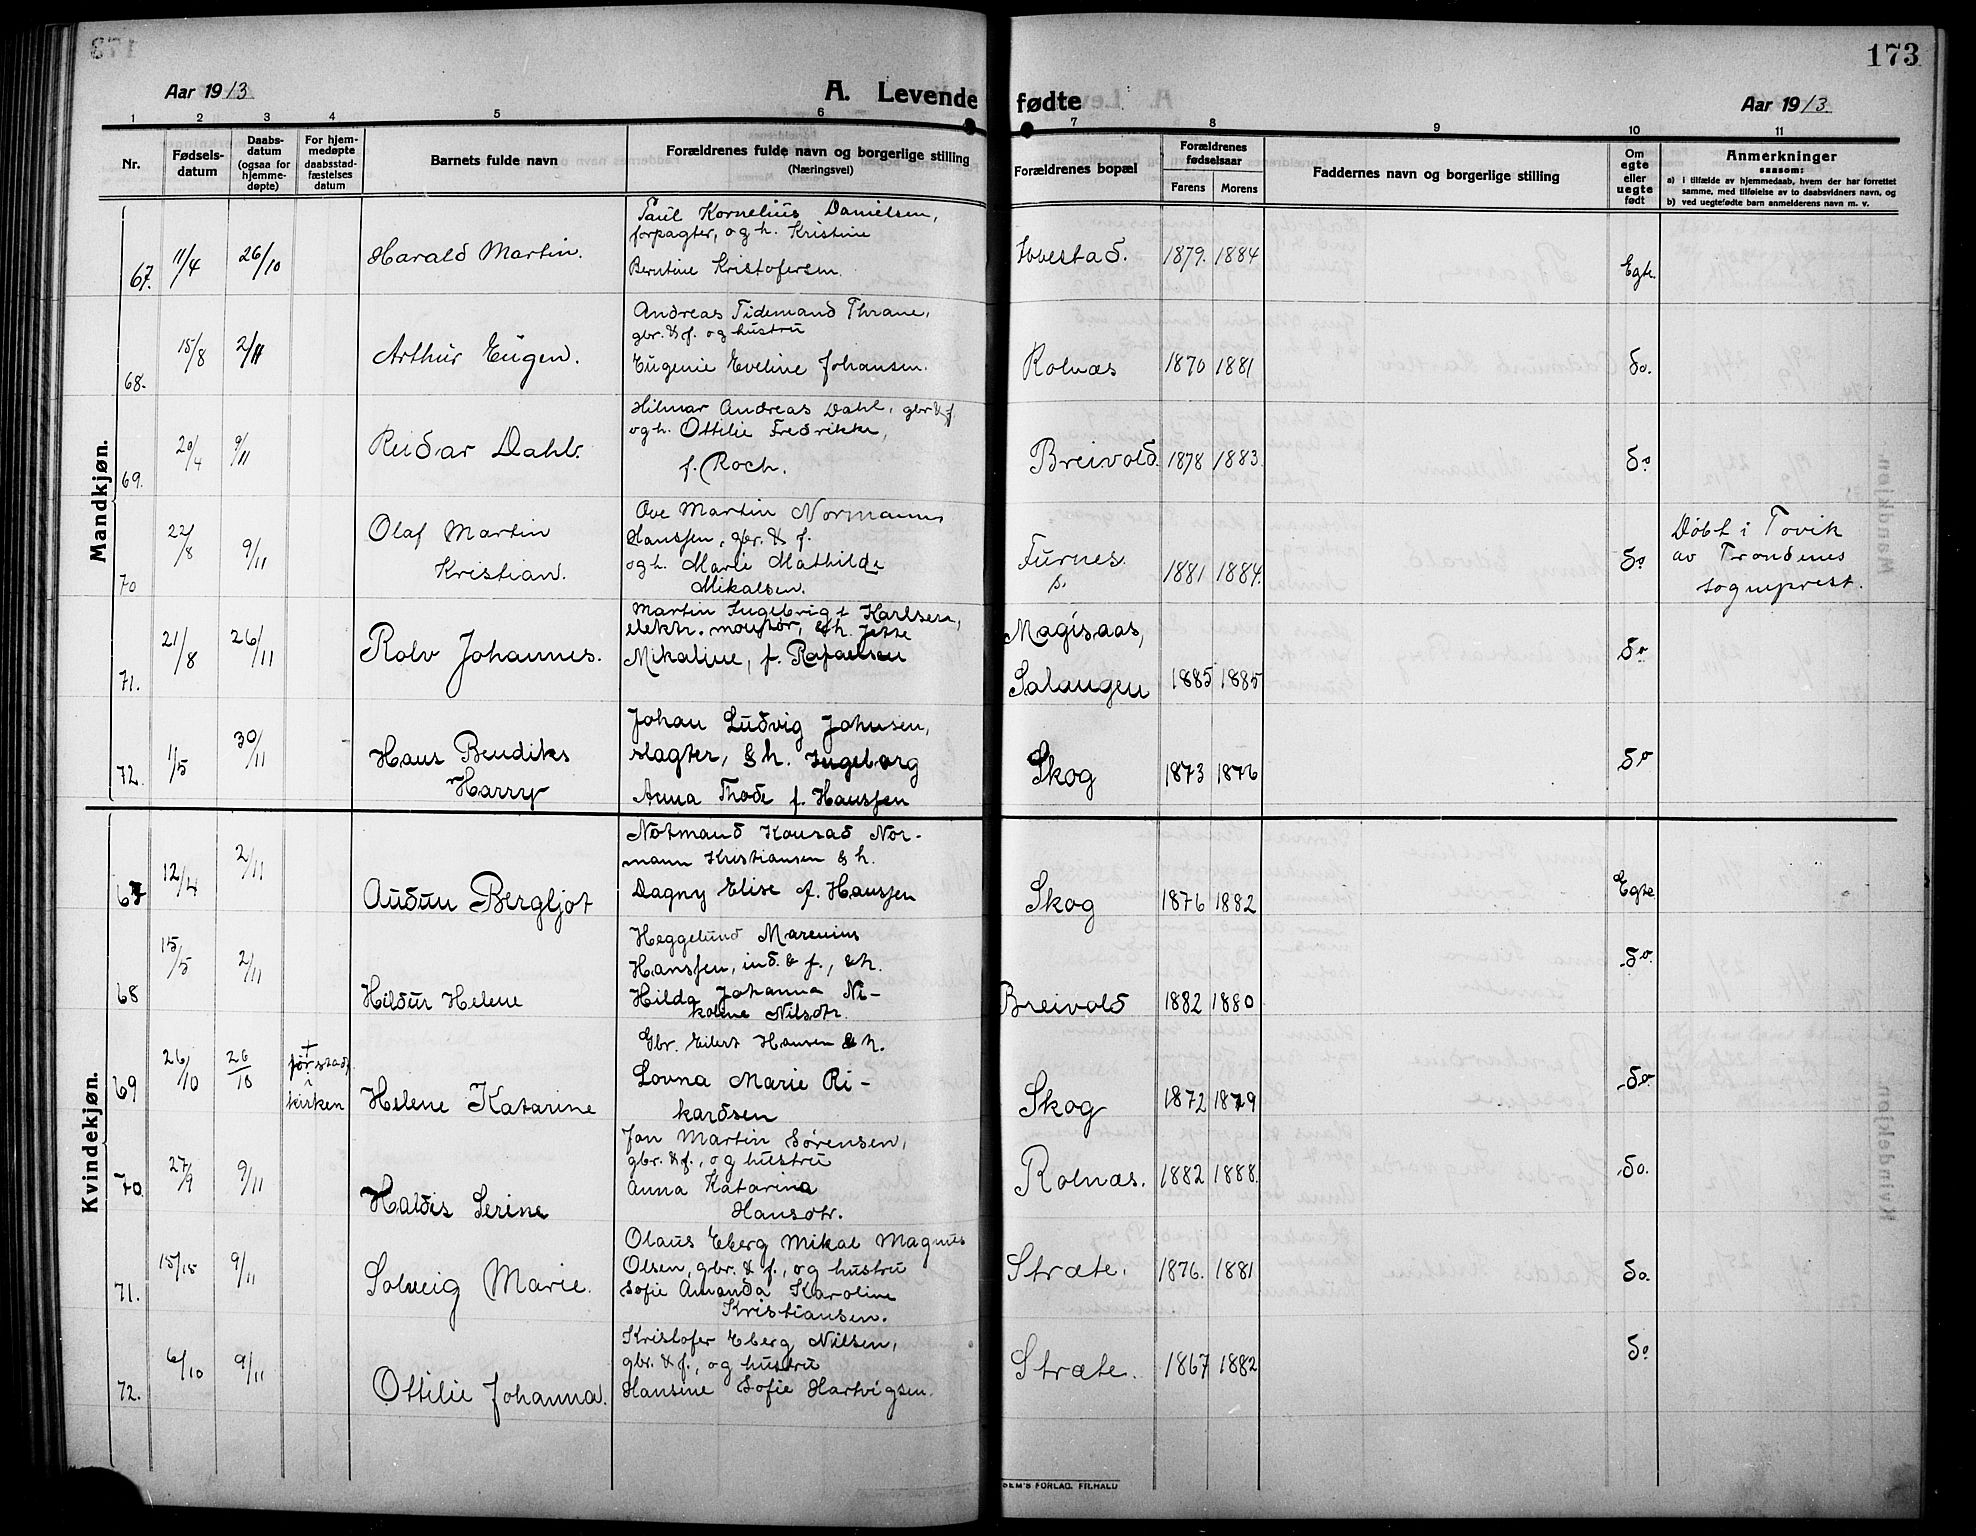 173
Aar 1913
A. Levende fødte
Aar 1913
1 2 3 4 5 6 7 8 9 10 11
Nr.
Fødsels-
datum
Daabs-
datum
(ogsaa for
hjemme-
døpte)
For hjem-
medøpte
daabsstad-
fæstelses
datum
Barnets fulde navn
Forældrenes fulde navn og borgerlige stilling
(Næringsvei)
Forældrenes bopæl
Forældrenes
fødselsaar
Farens
Morens
Faddernes navn og borgerlige stilling
Om
egte
eller
uegte
født
Anmerkninger
saasom:
a) i tilfælde av hjemmedaab, hvem der har forrettet
samme, med tilføielse av to daabsvidners navn, og
b) ved uegtefødte barn anmelderens navn m. v.
Mandkjøn.
67. 11/4 26/10 Harald Martin.
Paul Kornelius Danielsen,
forpagter, og h. Kristine
Berntine Kristofersen.
Ibbestad. 1879. 1884 Egte.
68. 15/8 2/11 Arthur Eugen.
Andreas Tidemand Thrane,
gbr. & f. og hustru
Eugenie Eveline Johansen.
Rolnæs 1870 1881 do.
69. 20/4 9/11 Reidar Dahl.
Hilmar Andreas Dahl, gbr & f
og h. Ottilie Fredrikke,
f. Roch.
Breivold. 1878 1883. do
70 22/8 9/11 Olaf Martin
Kristian.
Ove Martin Normann
Hanssen, gbr. & f.
og h. Marie Mathilde
Mikalsen.
Furnes. 1881 1884. do
Døbt i Tovik
av Trondenes
sogneprest.
71. 21/8 26/11 Rolv Johannes.
Martin Ingebrigt Karlsen,
elektr. montør, & h. Jette
Mikaline, f. Rafaelsen
Magisaas,
Salangen 1885 1885 do
72. 1/5 30/11 Hans Bendiks
Harry
Johan Ludvig Johnsen,
slagter, & h. Ingeborg
Anna Thode f. Hanssen
Skog 1873 1876 do
Kvindekjøn.
67 12/4 2/11 Audun Bergljot
Notmand Konrad Nor-
mann Kristiansen & h.
Dagny Elise f. Hanssen
Skog 1876 1882 Egte
68 15/5 2/11 Hildur Helene
Heggelund Marenius
Hanssen, ind. & f., & h.
Hilda Johanna Ni-
koline Nilsdtr.
Breivold 1882 1880 do.
69 26/10 26/10
kirken Helene Katarine
Gbr. Eilert Hansen & h.
Lovna Marie Ri-
kardsen
Skog 1872 1879 do
70. 27/9 9/11 Haldis Serine
Jon Martin Sørensen,
gbr. & f., og hustru
Anna Katarina
Hansdtr.
Rolnæs. 1882 1888. do.
71. 9/11 Solveig Marie.
Olaus Eberg Mikal Magnus
Olsen, gbr. & f., og hustru
Sofie Amanda Karoline
Kristiansen.
Stræte. 1876. 1881 do.
72. 6/10 9/11 Ottilie Johanna.
Kristofer Eberg Nilsen,
gbr. & f., og hustru
Hansine Sofie Hartvigsen.
Stræte. 1867 1882 do
DEM'S FORLAG. FR.HALD